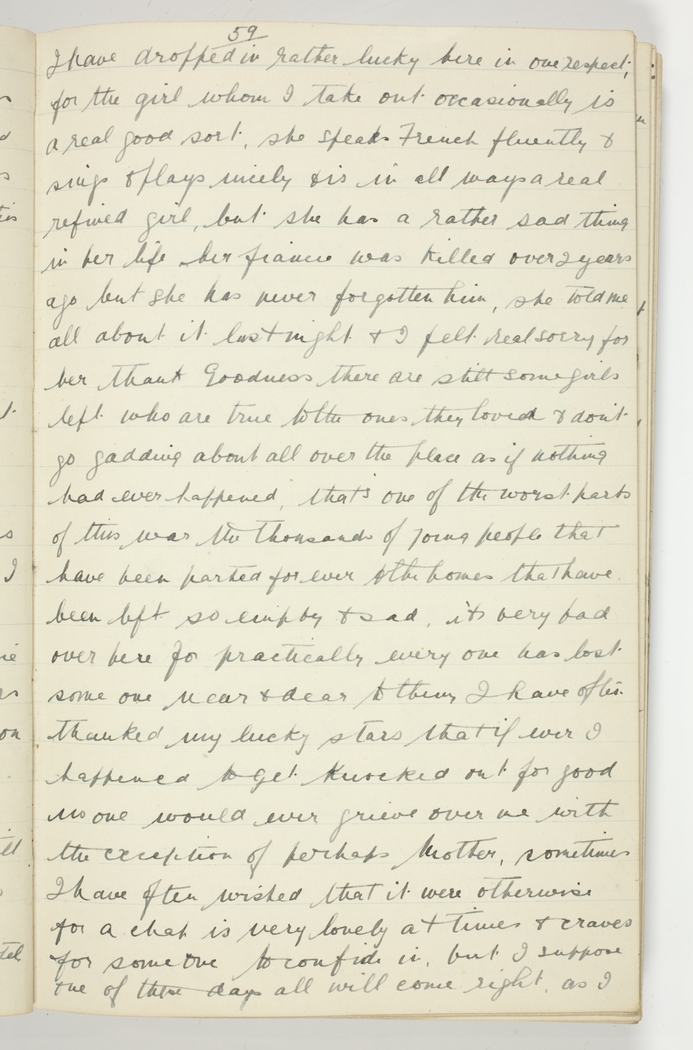 59
I have dropped in rather lucky here in one respect,
for the girl whom I take out occasionally is
a real good sort, she speaks French fluently &
sings & plays nicely & is in all ways a real
refined girl, but she has a rather sad thing
in her life her fiancee was killed over 2 years
ago but she has never forgotten him, she told me
all about it last night & I felt real sorry for
her thank Goodness there are still some girls
left who are true to the ones they loved & don't
go gadding about all over the place as if nothing
had ever happened, that's one of the worst parts
of this war the thousands of young people that
have been parted for ever & the homes that have
been left so empty & sad, its very bad
over here for practically every one has lost
some one near & dear to them, I have often
thanked my lucky stars that if ever I
happened to get knocked out for good
no one would ever grieve over me with
the exception of perhaps Mother, sometimes
I have often wished that it were otherwise
for a chap is very lonely at times & craves
for some one to confide in, but I suppose
one of these days all will come right, as I